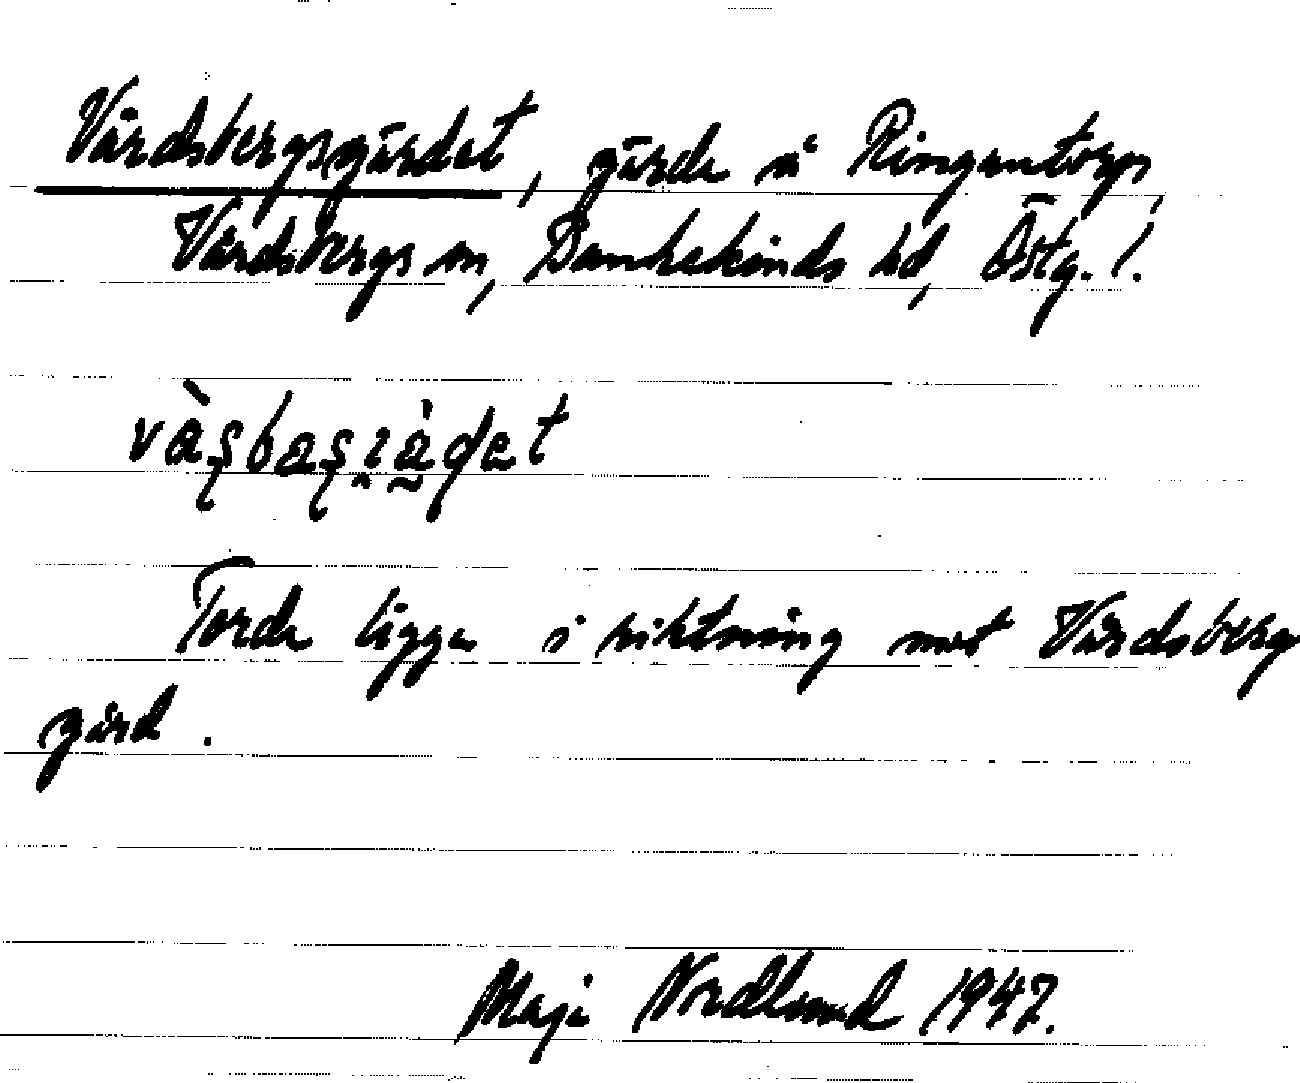 Vårdsbergsgärdet, gärde å Ringentorp,
Vårdsbergs sn, Bankekinds hd, Östg. l.
Torde ligga i riktning mot Vårdsberg
gård.
Maji Nordlund 1947.